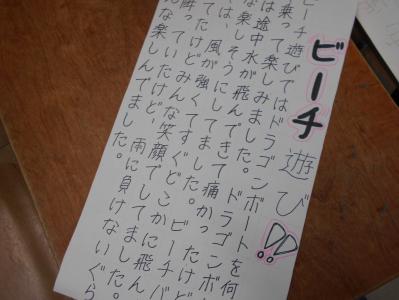 ビーチ遊び!!
ビーチ遊びではドラゴンボートを何
乗って楽しみました。ドラゴンボ
は途中水が飛んできて痛かったけど
な楽しそうにしてました。ビーチバ
は、風が強くてすぐどこかに飛ん
てたけどみんな笑顔でしてました。
降っていたけど、雨に負けないぐら
んな楽しんでました。